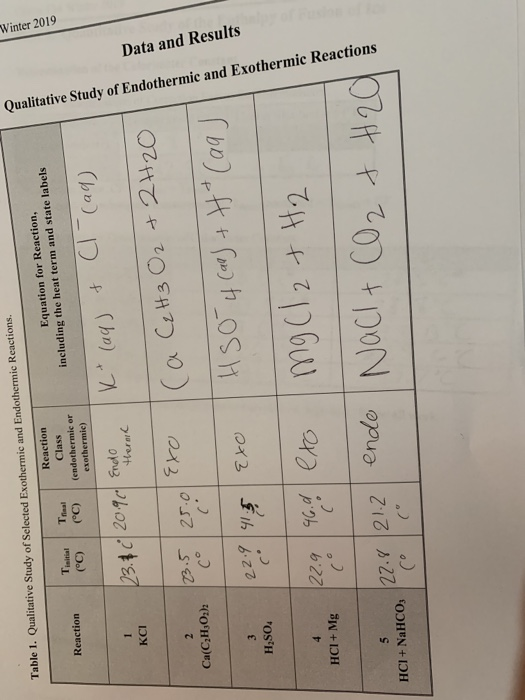 Winter 2019
Data and Results
Qualitative Study of Endothermic and Exothermic Reactions
Table 1. Qualitative Study of Selected Exothermic and Endothermic Reactions.
Reaction
Tinitial
(°C)
Tfinal
(°C)
Reaction
Class
(endothermic or
exothermic)
Equation for Reaction,
including the heat term and state labels
1
KCl
20.9C
Endo
K+ (aq) + Cl- (aq)
2
Ca(C₂H₃O₂)₂
23.5
C°
25.0
C°
Exo
Ca C2H3O2 + 2H2O
3
H₂SO₄
22.9
C°
Exo
HSO-4 (aq) + H+ (aq)
4
HCl + Mg
22.9
C°
46.9
C°
exo
MgCl2 + H2
5
HCl + NaHCO₃
22.8
C°
21.2
C°
endo
NaCl + CO2 + H2O